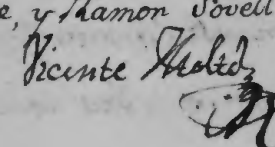 e, y Ramon Sovell
Vicente Moltó